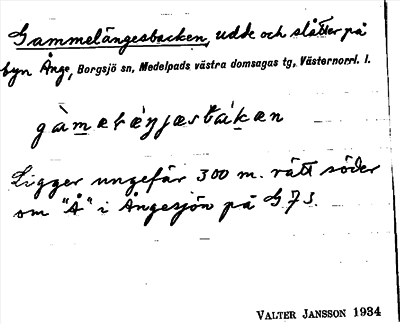 Gammelängesbacken, udde och slåtter på
byn Ånge, Borgsjö sn, Medelpads västra domsagas tg, Västernorrl. l.
Ligger ungefär 300 m. rätt söder
om "Å" i Ångesjön på G 73.
VALTER JANSSON 1934